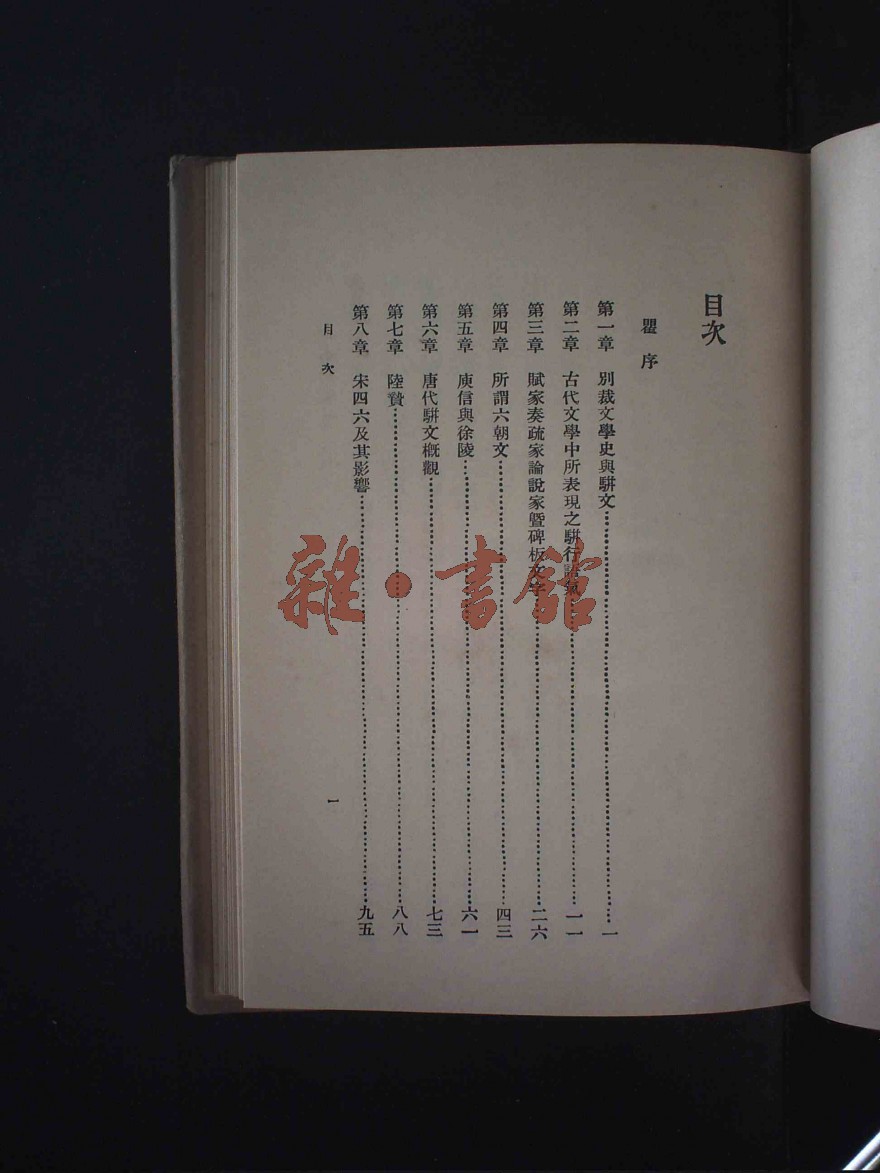 目次
瞿序
第一章 別裁文學史與駢文……一
第二章 古代文學中所表現之駢行語氣……一一
第三章 賦家奏疏家論說家曁碑板文字……二六
第四章 所謂六朝文……四三
第五章 庾信與徐陵……六一
第六章 唐代駢文概觀……七三
第七章 陸贄……八八
第八章 宋四六及其影響……九五
目次
一
雜·書館